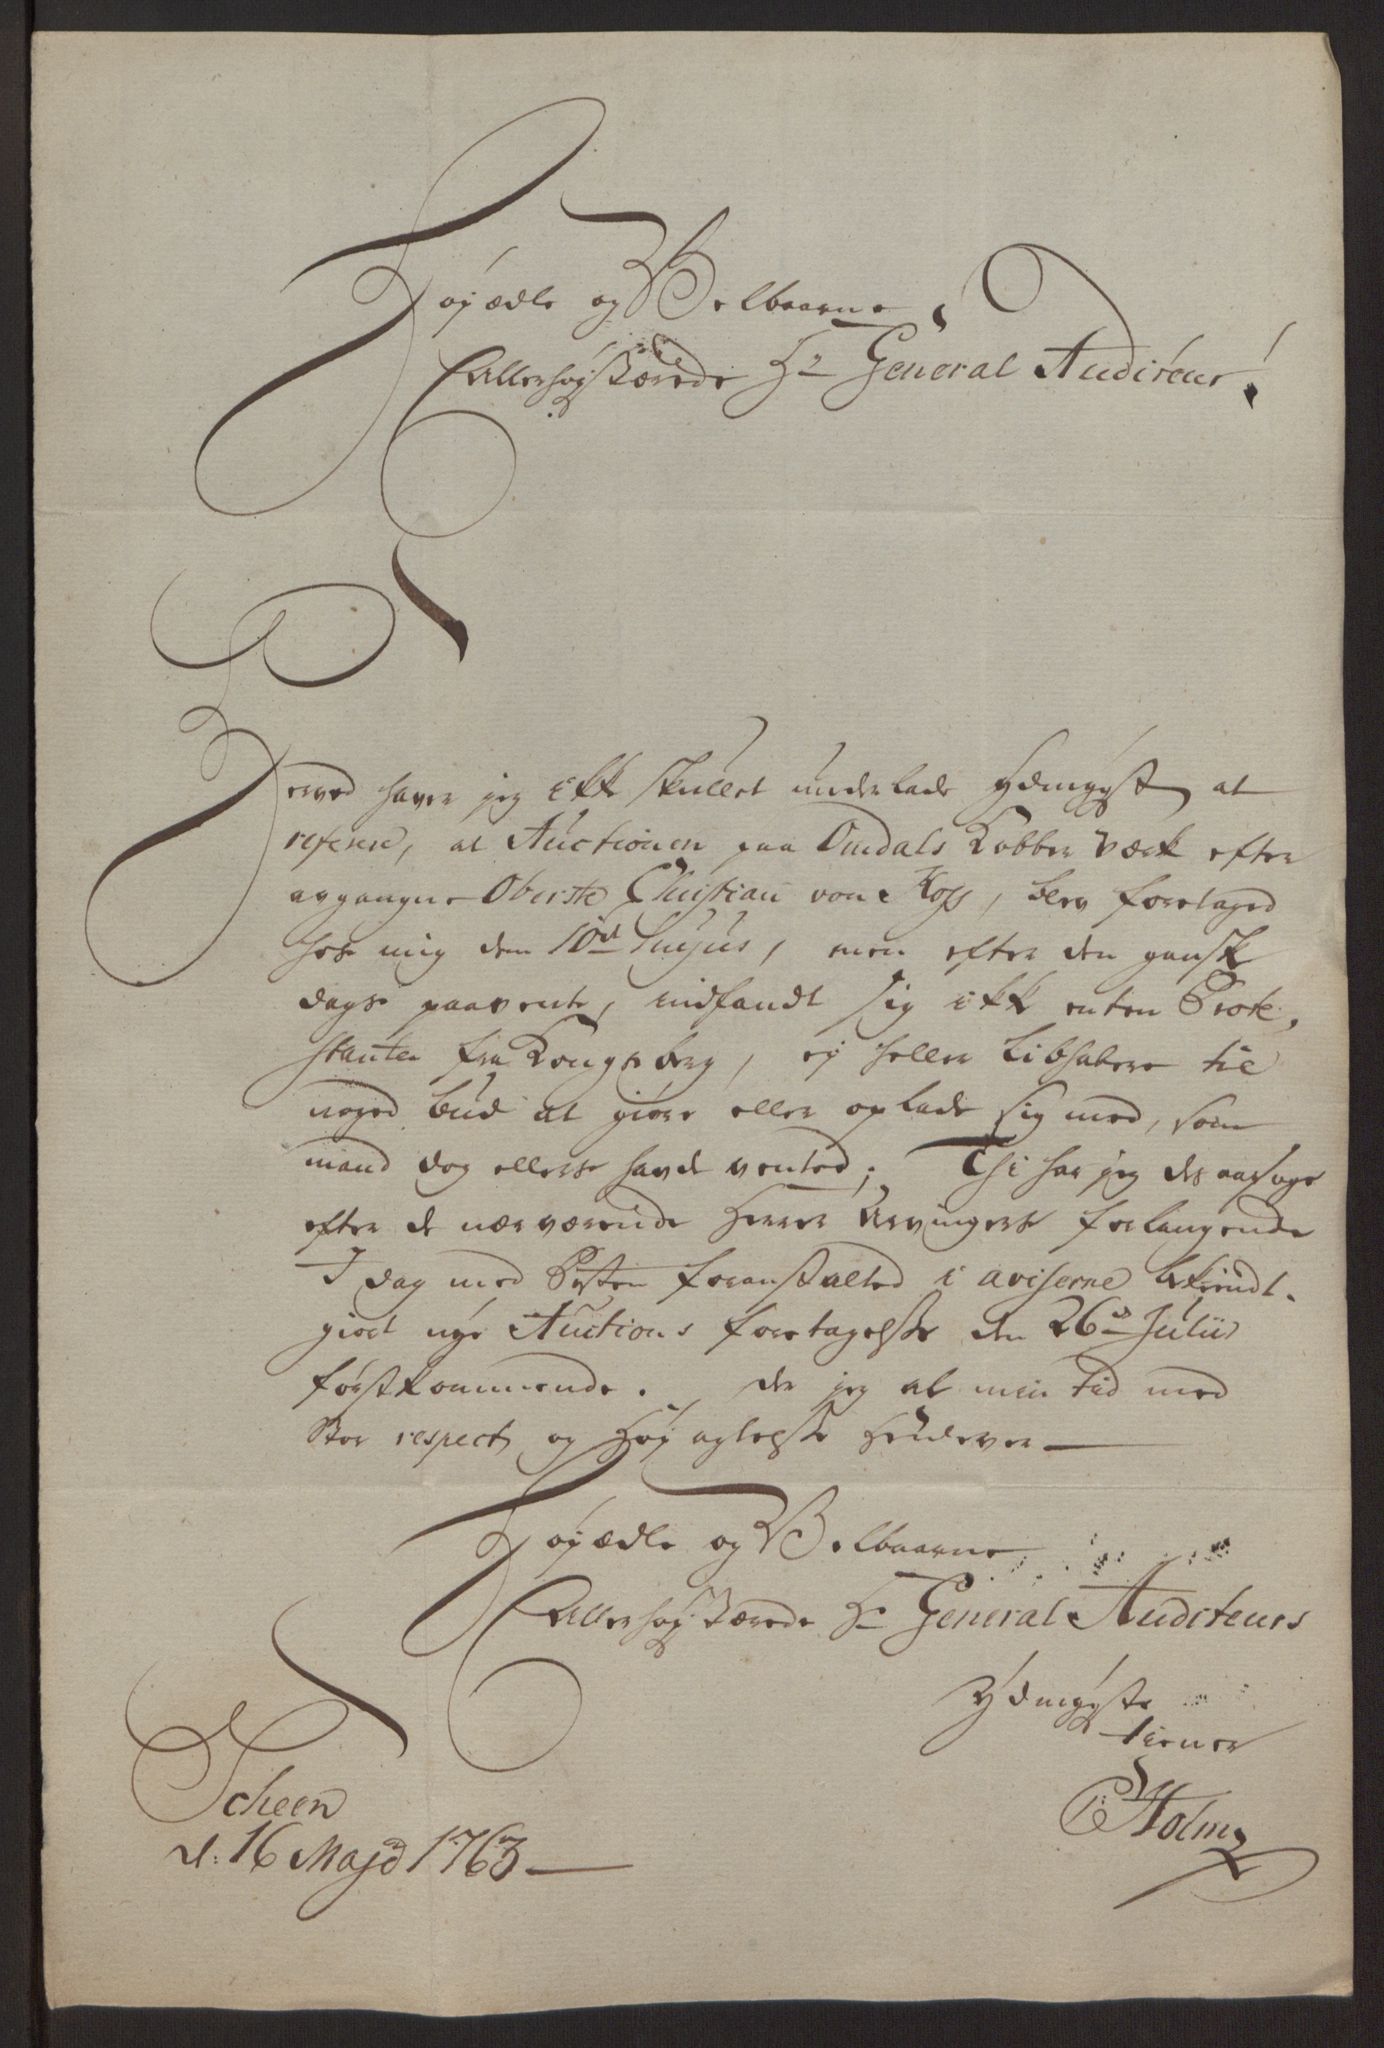 Høyædle og Velbaarne
Allerhøystærede Hr General Auditeur!
Herved haver jeg ikke skullet underlade ydmygst at
referere, at Auctionen paa Omdals Kobber Værk efter
avgangne Oberste Christian von Koss, blev foretaged
hos mig dem 10de hujus, men efter den ganske
dags paavente, indfandt sig ikke enten Prote-
stanter fra Kongsberg, ej heller Liebhabere til
noged bud at giøre eller oplade sig med, som
mand dog ellers havde ventet; Thi har jeg des aarsage
efter de nærværende Herrer Arvingers forlangende
I dag med Posten foranstalted i aviserne bekiendt-
giort nye Auctions foretagelse den 26de Julii
førstkommende. Der jeg al min tid med
Stor respect og Høyagtelse Henlever
Høyædle og Velbaarne
Allerhøystærede Hr General Auditeurs
Ydmygste
tiener
Holm
Scheen
d: 16 Maji 1763